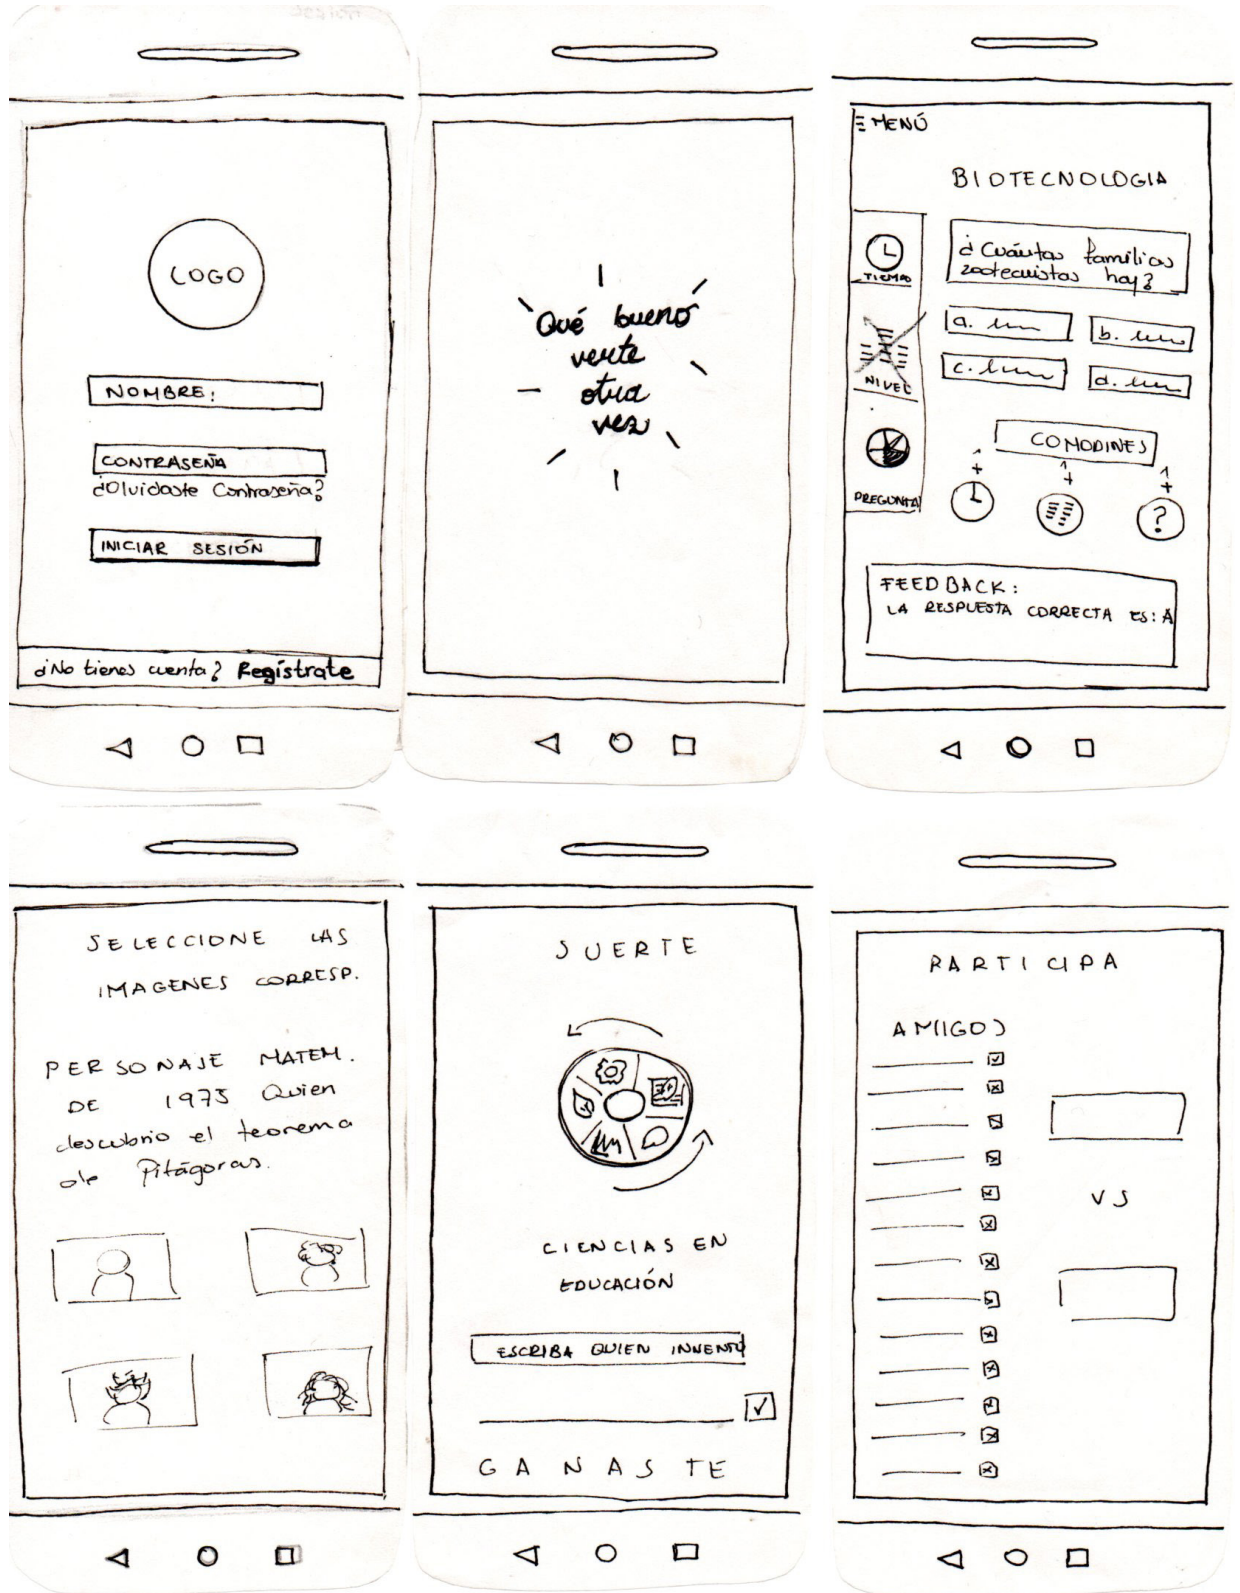 LOGO
NOMBRE:
CONTRASEÑA
¿Olvidaste Contraseña?
INICIAR SESIÓN
¿No tienes cuenta? Regístrate
Qué bueno
verte
otra
vez
MENÚ
BIOTECNOLOGIA
TIEMPO
NIVEL
PREGUNTA
¿Cuántas familias
zootecnistas hay?
a.
b.
c.
d.
COMODINES
+ + +
?
FEEDBACK:
LA RESPUESTA CORRECTA ES: A
SELECCIONE LAS
IMAGENES CORRESP.
PERSONAJE MATEM.
DE 1975 Quien
descubrio el teorema
de Pitágoras.
SUERTE
CIENCIAS EN
EDUCACIÓN
ESCRIBA QUIEN INVENTÓ
GANASTE
PARTICIPA
AMIGOS
VS